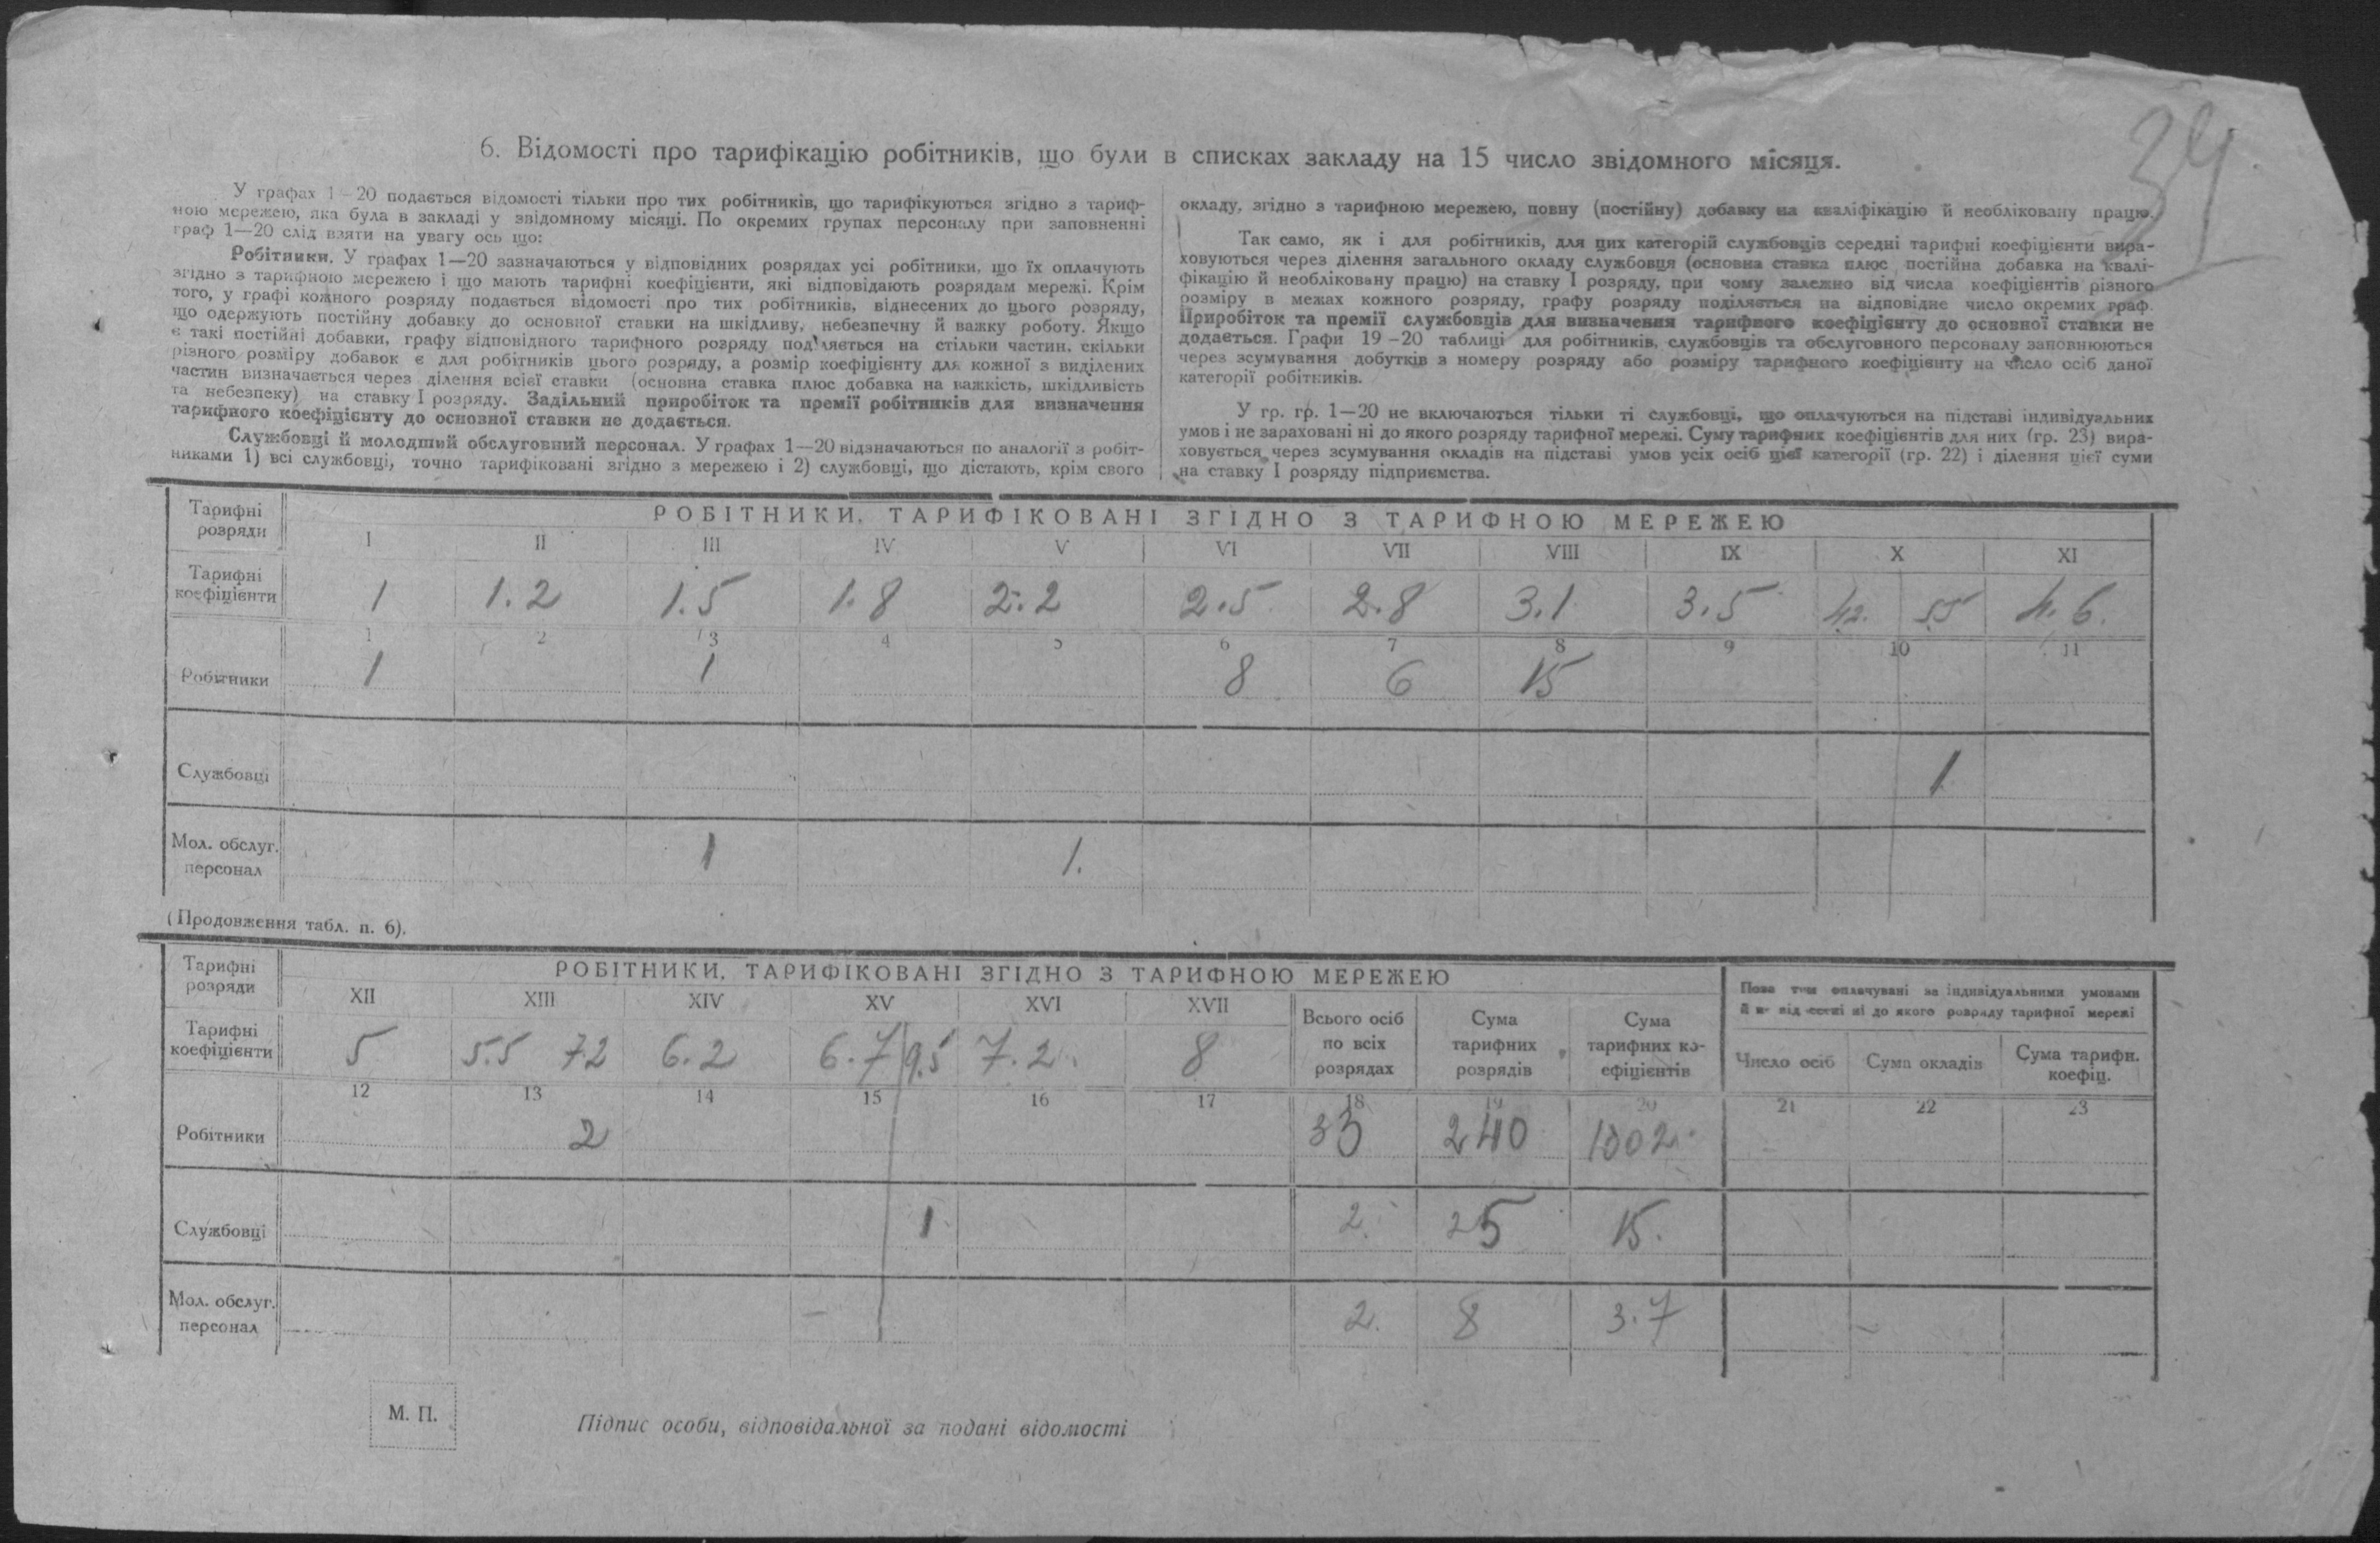 34
6. Відомості про тарифікацію робітників, що були в списках закладу на 15 число звідомного місяця.
У графах 1—20 подається відомості тільки про тих робітників, що тарифікуються згідно з тариф-
ною мережею, яка була в закладі у звідомному місяці. По окремих групах персоналу при заповненні
граф 1—20 слід взяти на увагу ось що:
Робітники. У графах 1—20 зазначаються у відповідних розрядах усі робітники, що їх оплачують
згідно з тарифною мережею і що мають тарифні коефіцієнти, які відповідають розрядам мережі. Крім
того, у графі кожного розряду подається відомості про тих робітників, віднесених до цього розряду,
що одержують постійну добавку до основної ставки на шкідливу, небезпечну й важку роботу. Якщо
є такі постійні добавки, графу відповідного тарифного розряду поділяється на стільки частин, скільки
різного розміру добавок є для робітників цього розряду, а розмір коефіцієнту для кожної з виділених
частин визначається через ділення всієї ставки (основна ставка плюс добавка на важкість, шкідливість
та небезпеку) на ставку I розряду. Задільний приробіток та премії робітників для визначення
тарифного коефіцієнту до основної ставки не додається.
Службовці й молодший обслуговний персонал. У графах 1—20 відзначаються по аналогії з робіт-
никами 1) всі службовці, точно тарифіковані згідно з мережею і 2) службовці, що дістають, крім свого
окладу, згідно з тарифною мережею, повну (постійну) добавку на кваліфікацію й необліковану працю.
Так само, як і для робітників, для цих категорій службовців середні тарифні коефіцієнти вира-
ховуються через ділення загального окладу службовця (основна ставка плюс постійна добавка на квалі-
фікацію й необліковану працю) на ставку I розряду, при чому залежно від числа коефіцієнтів різного
розміру в межах кожного розряду, графу розряду поділяється на відповідне число окремих граф.
Приробіток та премії службовців для визначення тарифного коефіцієнту до основної ставки не
додається. Графи 19—20 таблиці для робітників, службовців та обслуговного персоналу заповнюються
через зсумування добутків з номеру розряду або розміру тарифного коефіцієнту на число осіб даної
категорії робітників.
У гр. гр. 1—20 не включаються тільки ті службовці, що оплачуються на підставі індивідуальних
умов і не зараховані ні до якого розряду тарифної мережі. Суму тарифних коефіцієнтів для них (гр. 23) вира-
ховується через зсумування окладів на підставі умов усіх осіб цієї категорії (гр. 22) і ділення цієї суми
на ставку I розряду підприємства.
Тарифні розряди РОБІТНИКИ, ТАРИФІКОВАНІ ЗГІДНО З ТАРИФНОЮ МЕРЕЖЕЮ
I II III IV V VI VII VIII IX X XI
Тарифні коефіцієнти 1 1.2 1.5 1.8 2.2 2.5 2.8 3.1 3.5 42. 5.5 4.6.
1 2 3 4 5 6 7 8 9 10 11
Робітники 1 1 8 6 15
Службовці 1
Мол. обслуг. персонал 1 1.
(Продовження табл. п. 6).
Тарифні розряди РОБІТНИКИ, ТАРИФІКОВАНІ ЗГІДНО З ТАРИФНОЮ МЕРЕЖЕЮ
XII XIII XIV XV XVI XVII Всього осіб по всіх розрядах Сума тарифних розрядів Сума тарифних ко-ефіцієнтів
Поза тим оплачувані за індивідуальними умовами
ні до якого розряду тарифної мережі
Число осіб Сума окладів Сума тарифн. коефіц.
Тарифні коефіцієнти 5 5.5 7.2 6.2 6.7 9.5 7.2. 8
12 13 14 15 16 17 18 19 20 21 22 23
Робітники 2 33 240 1002
Службовці 1 2. 25 15.
Мол. обслуг. персонал – 2. 8 3.7
М. П.
Підпис особи, відповідальної за подані відомості